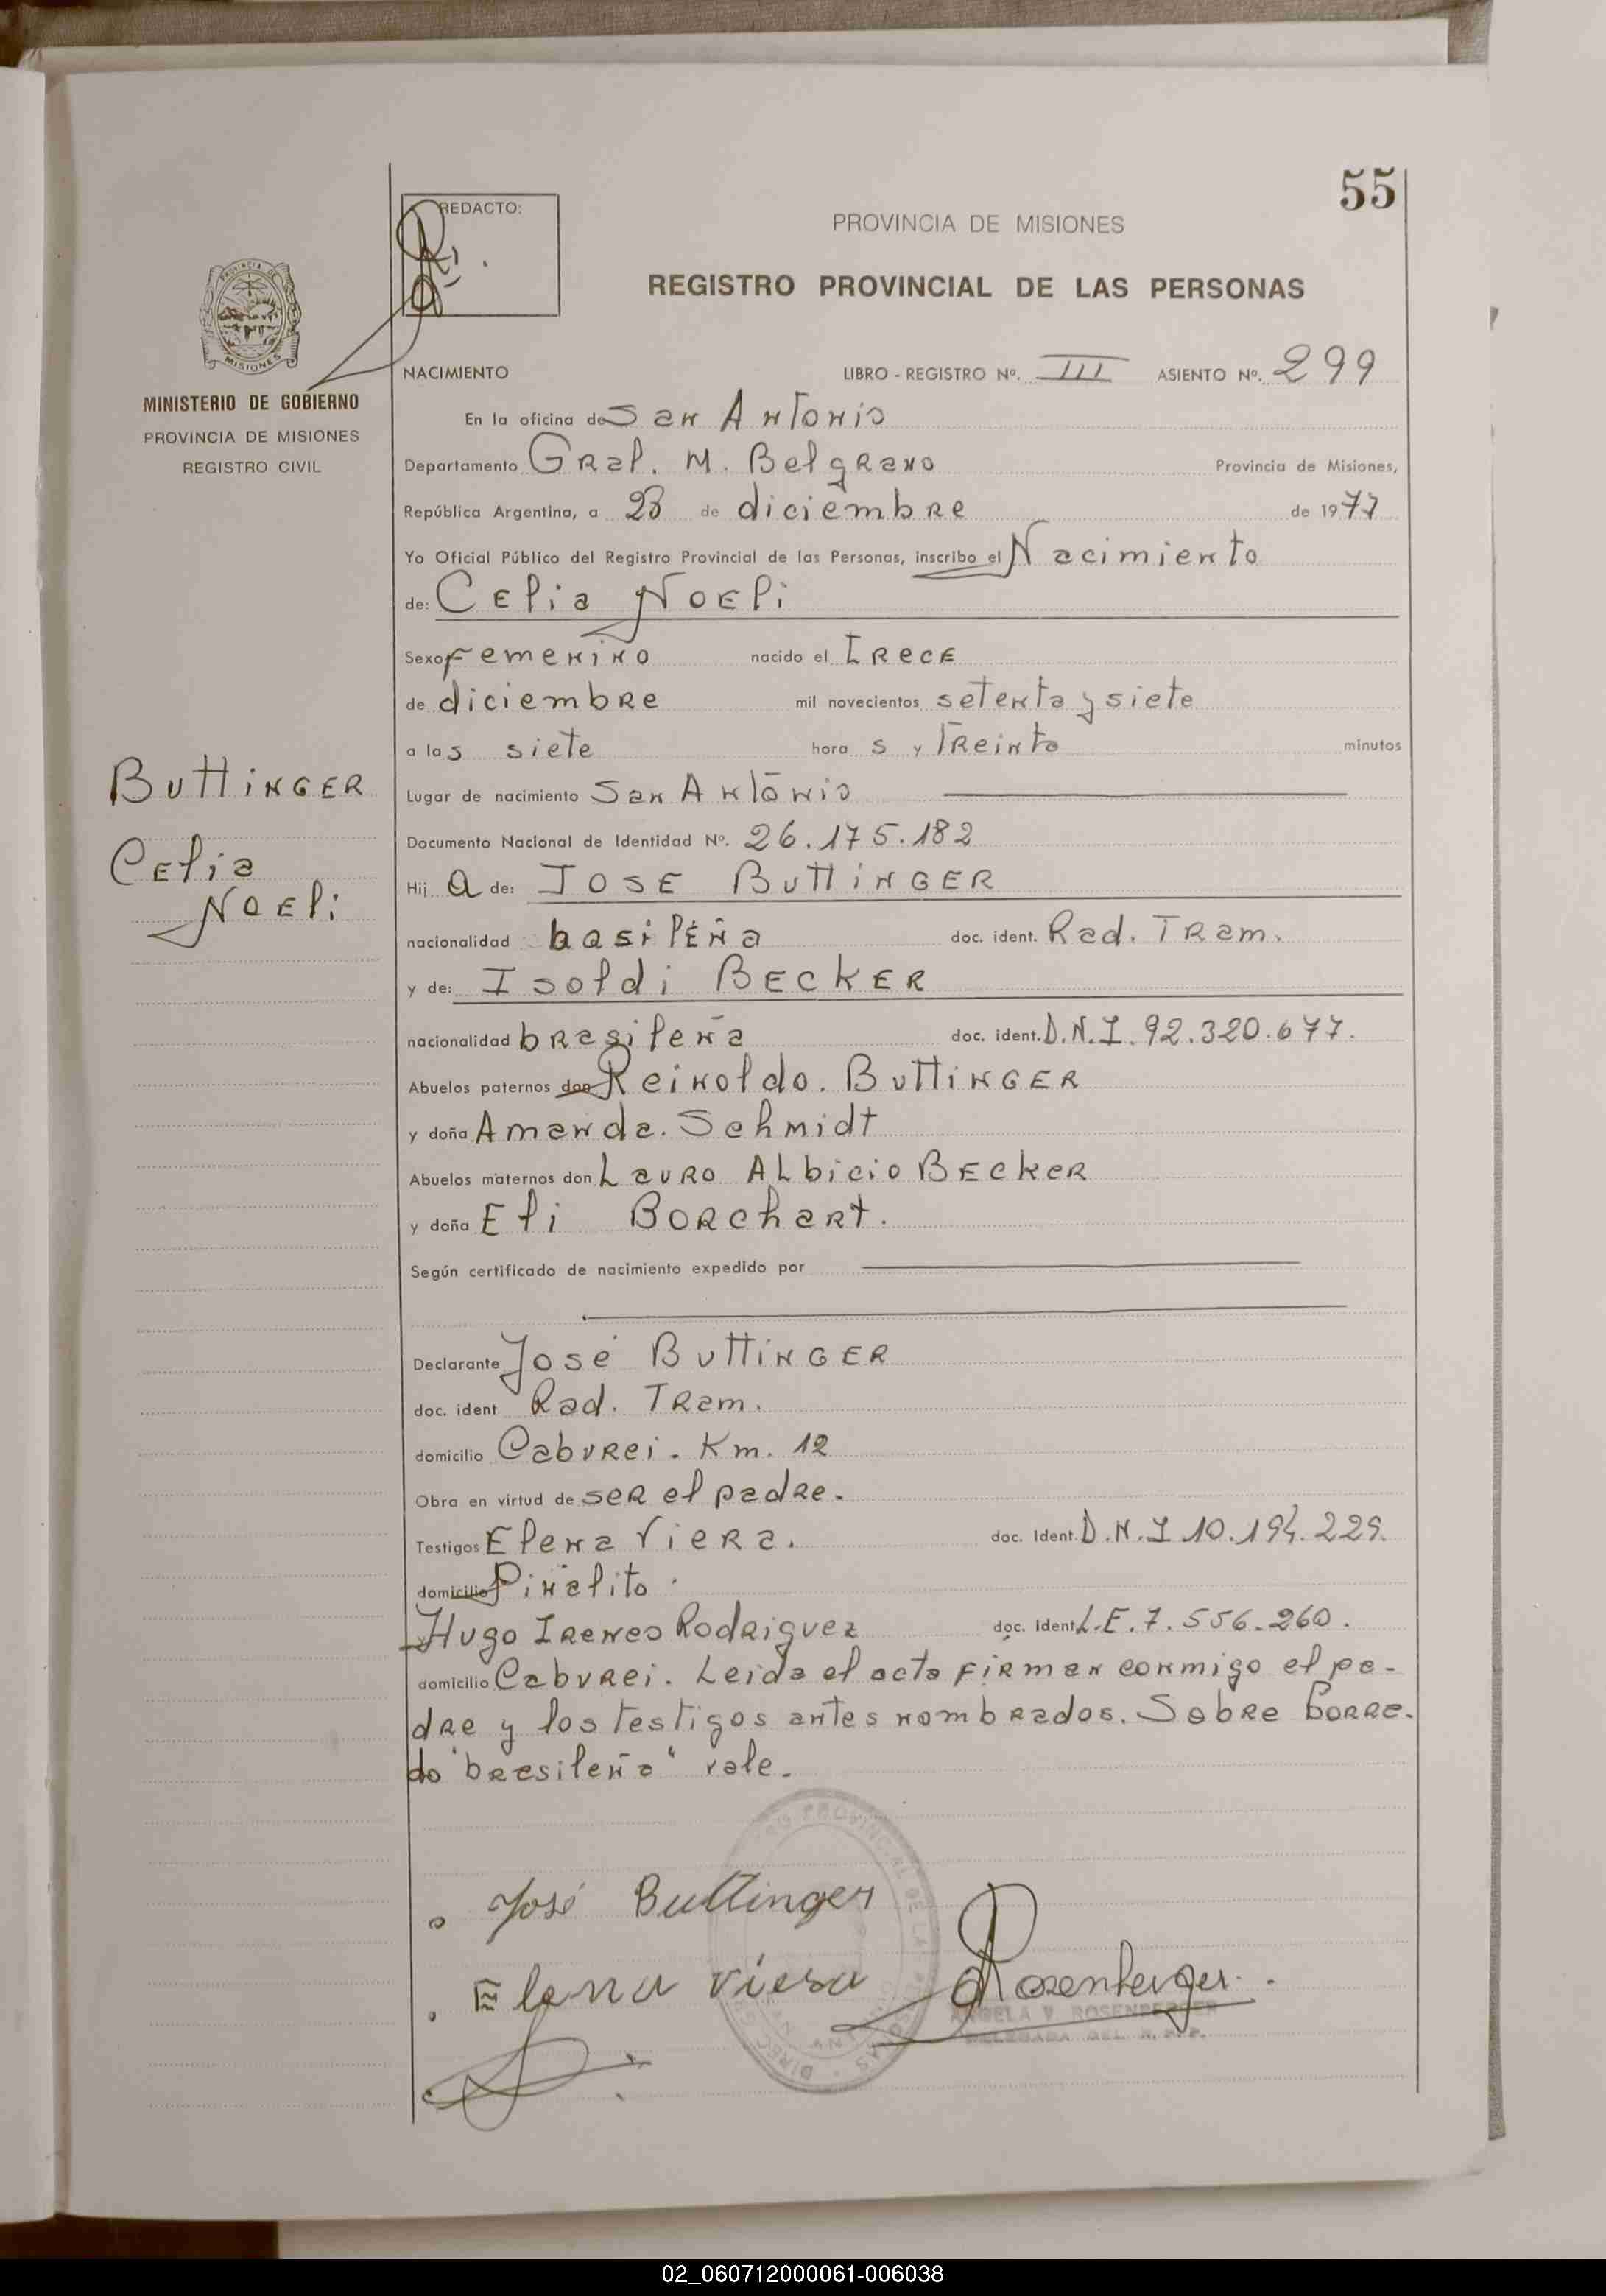 55
REDACTO:
PROVINCIA DE MISIONES
REGISTRO PROVINCIAL DE LAS PERSONAS
PROVINCIA DE
MISIONES
MINISTERIO DE GOBIERNO
PROVINCIA DE MISIONES
REGISTRO CIVIL
NACIMIENTO LIBRO - REGISTRO Nº. III ASIENTO Nº. 299
En la oficina de San Antonio
Departamento Gral. M. Belgrano Provincia de Misiones,
República Argentina, a 23 de diciembre de 1977
Yo Oficial Público del Registro Provincial de las Personas, inscribo el Nacimiento
de: Celia Noeli
Sexo Femenino nacido el Trece
de diciembre mil novecientos setenta y siete
a las siete hora s y Treinta minutos
Buttinger
Celia
Noeli
Lugar de nacimiento San Antonio
Documento Nacional de Identidad Nº. 26.175.182
Hij a de: JOSE Buttinger
nacionalidad basileña doc. ident. Rad. Tram.
y de: Isoldi Becker
nacionalidad brasileña doc. ident. D.N.I. 92.320.677.
Abuelos paternos don Reinoldo. Buttinger
y doña Amanda. Schmidt
Abuelos maternos don Lauro Albicio Becker
y doña Eli Borchart.
Según certificado de nacimiento expedido por
Declarante José Buttinger
doc. ident Rad. Tram.
domicilio Caburei. Km. 12
Obra en virtud de ser el padre.
Testigos Elena Viera. doc. Ident. D.N.I 10.194.229.
domicilio Piñalito.
Hugo Ireneo Rodriguez doc. Ident L.E. 7.556.260.
domicilio Caburei. Leida el acta firman conmigo el pa-
dre y los testigos antes nombrados. Sobre borra-
do "brasileña" vale.
José Buttinger
Elena viera Rosenberger.
ANGELA V. ROSENBERGER
DELEGADA DEL R.P.P.
02_060712000061-006038